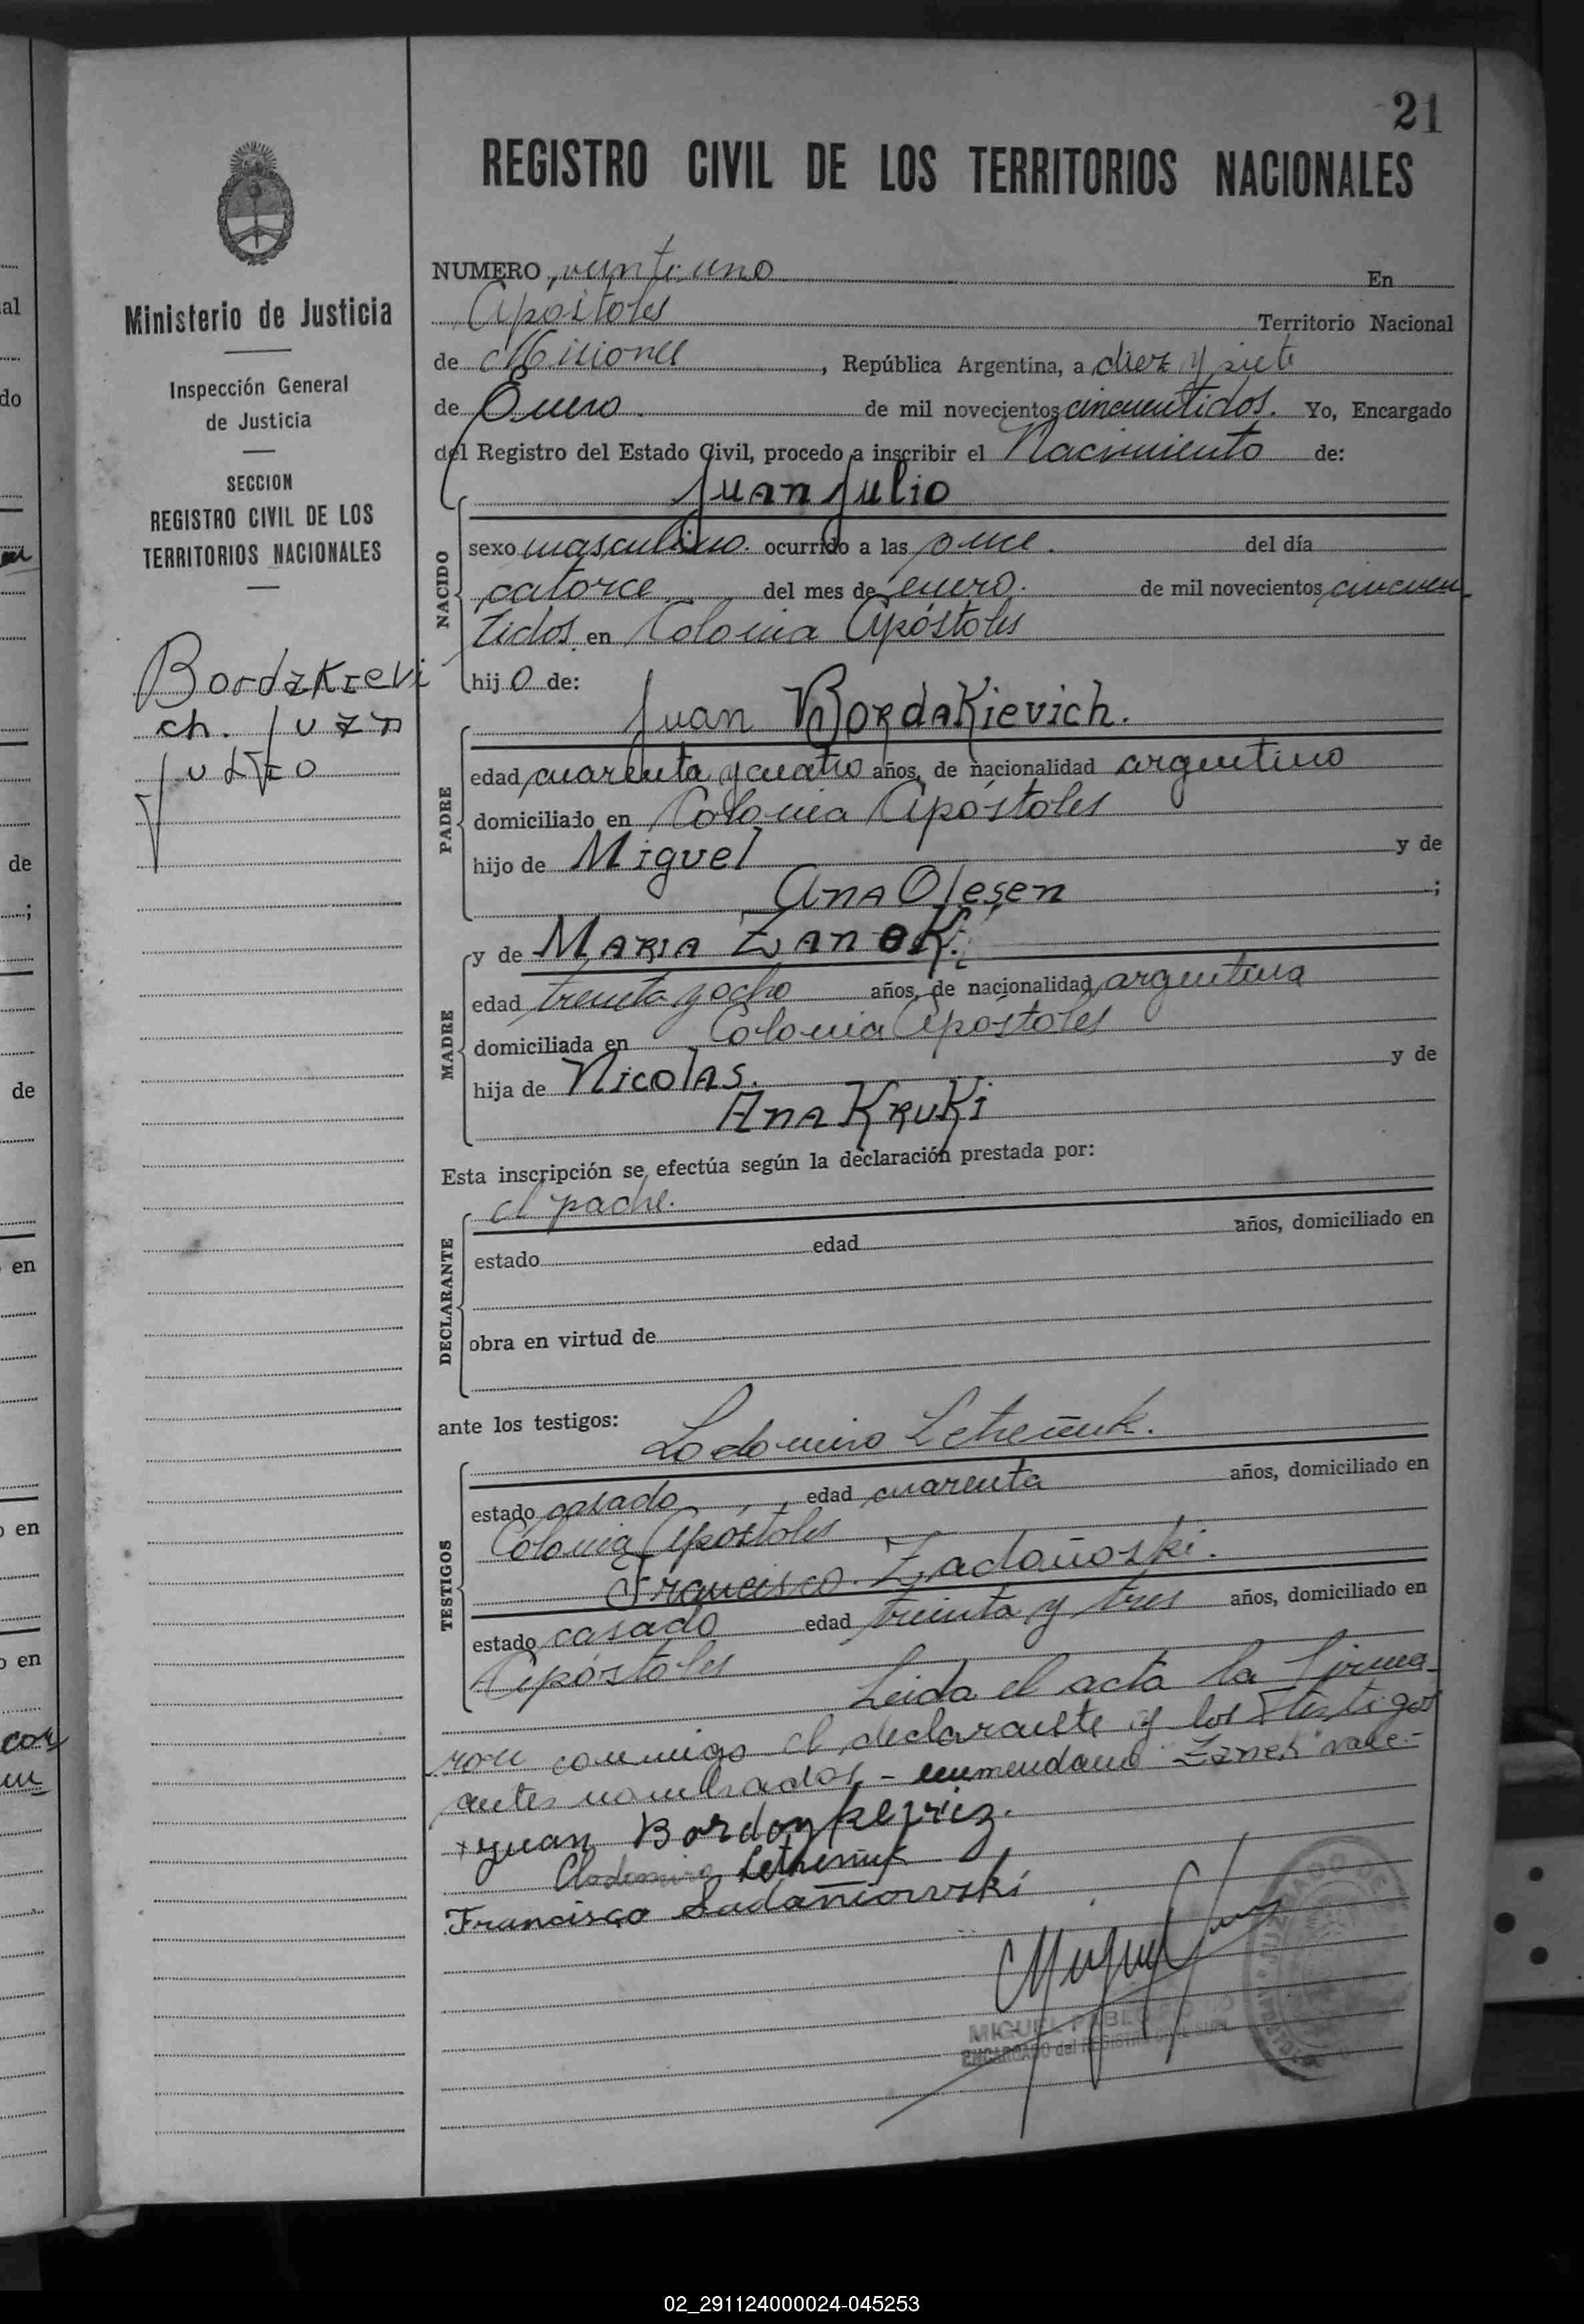 21
REGISTRO CIVIL DE LOS TERRITORIOS NACIONALES
Ministerio de Justicia
Inspección General
de Justicia
SECCION
REGISTRO CIVIL DE LOS
TERRITORIOS NACIONALES
Bordakievi
ch. Juan
Julio
NUMERO veinti uno En
Apóstoles Territorio Nacional
de Misiones, República Argentina, a diez y siete
de Enero. de mil novecientos cincuentidos. Yo, Encargado
del Registro del Estado Civil, procedo a inscribir el Nacimiento de:
Juan Julio
NACIDO
sexo masculino. ocurrido a las once. del día
catorce del mes de enero. de mil novecientos cincuen
tidos. en Colonia Apóstoles
hij o de:
Juan Bordakievich.
PADRE
edad cuarenta y cuatro años, de nacionalidad argentino
domiciliado en Colonia Apóstoles
hijo de Miguel y de
Ana Olesen ;
y de Maria Zanek.
MADRE
edad treinta y ocho años, de nacionalidad argentina
domiciliada en Colonia Apóstoles
hija de Nicolas. y de
Ana Kruki
Esta inscripción se efectúa según la declaración prestada por:
el padre.
DECLARANTE
estado edad años, domiciliado en
obra en virtud de
ante los testigos:
Lodomiro Letreñuk.
TESTIGOS
estado casado edad cuarenta años, domiciliado en
Colonia Apóstoles
Francisco Zadañoski.
estado casado edad treinta y tres años, domiciliado en
Apóstoles
Leida el acta la firma-
ron conmigo el declarante y los testigos
antes nombrados - enmendado "Zanek" vale-
Juan
Clodomiro Letreñuk
Francisco Sadañiowski
MIGUEL PABLO
ENCARGADO del REGISTRO CIVIL
al
do
de
;
de
en
en
en
02_291124000024-045253